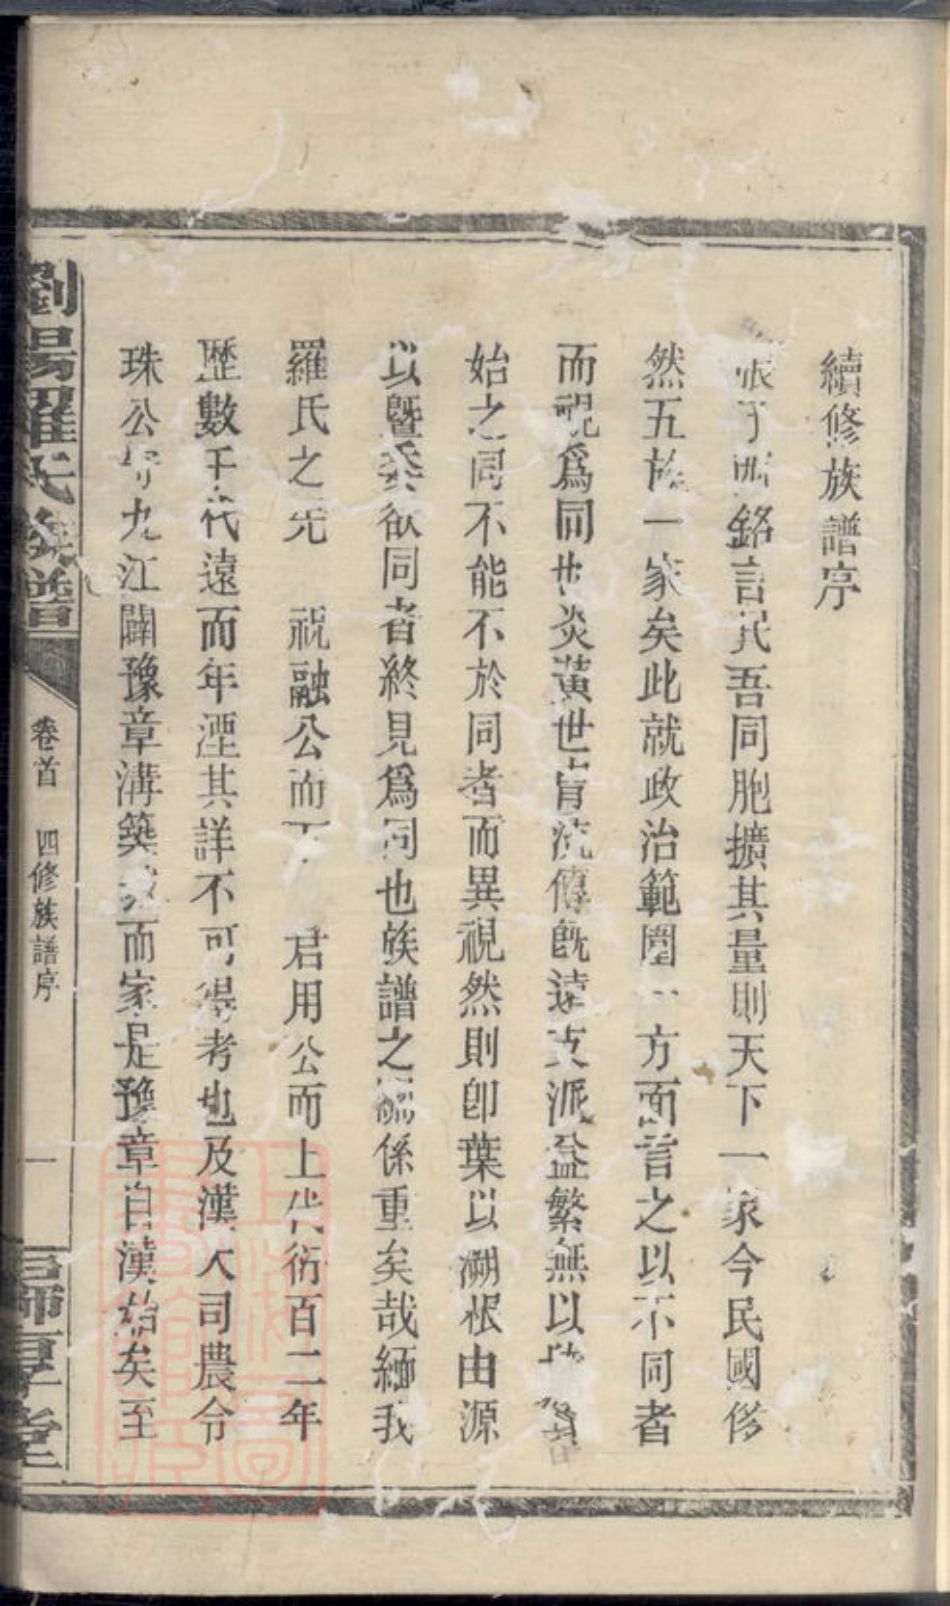 續修族譜序
張子西銘言民吾同胞擴其量則天下一家今民國修
然五族一家矣此就政治範圍一方面言之以不同者
而視爲同也炎黃世冑流傳既遠支派益繁無以
始之同不能不於同者而異視然則卽葉以溯根由源
以曁委欲同者終見爲同也族譜之編係重矣哉緬我
羅氏之先 祝融公而下 君用公而上世衍百二年
歷數千代遠而年湮其詳不可得考也及漢大司農令
珠公 九江闢豫章溝築城而家是豫章自漢始矣至
劉陽羅氏族譜
卷首 四修族譜序 一
厚堂
上海圖書館藏